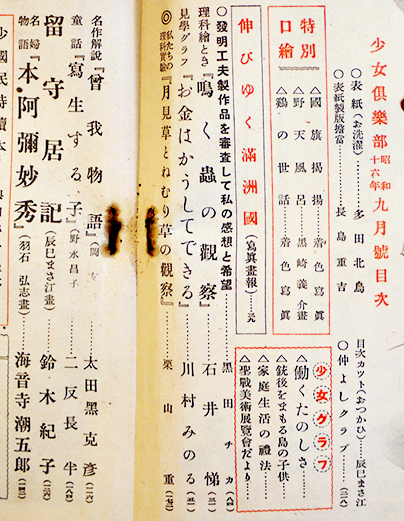 少女倶樂部 昭和十六年 九月號目次
◎表紙(お洗濯)……多田北烏
◎表紙製版擔當……長島重吉
目次カツト(おつかひ)…辰巳まさ江
◎仲よしクラブ……(三八)
特別口繪
△國旗揭揚……着色寫眞
△野天風呂……黑崎義介畫
△鷄の世話……着色寫眞
少女グラフ
△働くたのしさ……
△銃後をまもる島の子供
△家庭生活の禮法……
△聖戰美術展覽會だより……
伸びゆく滿洲國(寫眞畫報)…
◎發明工夫製作品を審査して私の感想と希望……黑田チカ
理科繪とき『鳴く蟲の觀察』……石井悌
見學グラフ『お金はかうしてできる』……川村みのる
◎私たちの理科實驗『月見草とねむり草の觀察』……栗山重
名作解說『曾我物語』……太田黑克彥
童話『寫生する子』(野水昌子)……二反長半
留守居記(辰巳まさ江畫)……鈴木紀子
名婦物語『本阿彌妙秀』(羽石弘志畫)……海音寺潮五郎
少國民特讀本